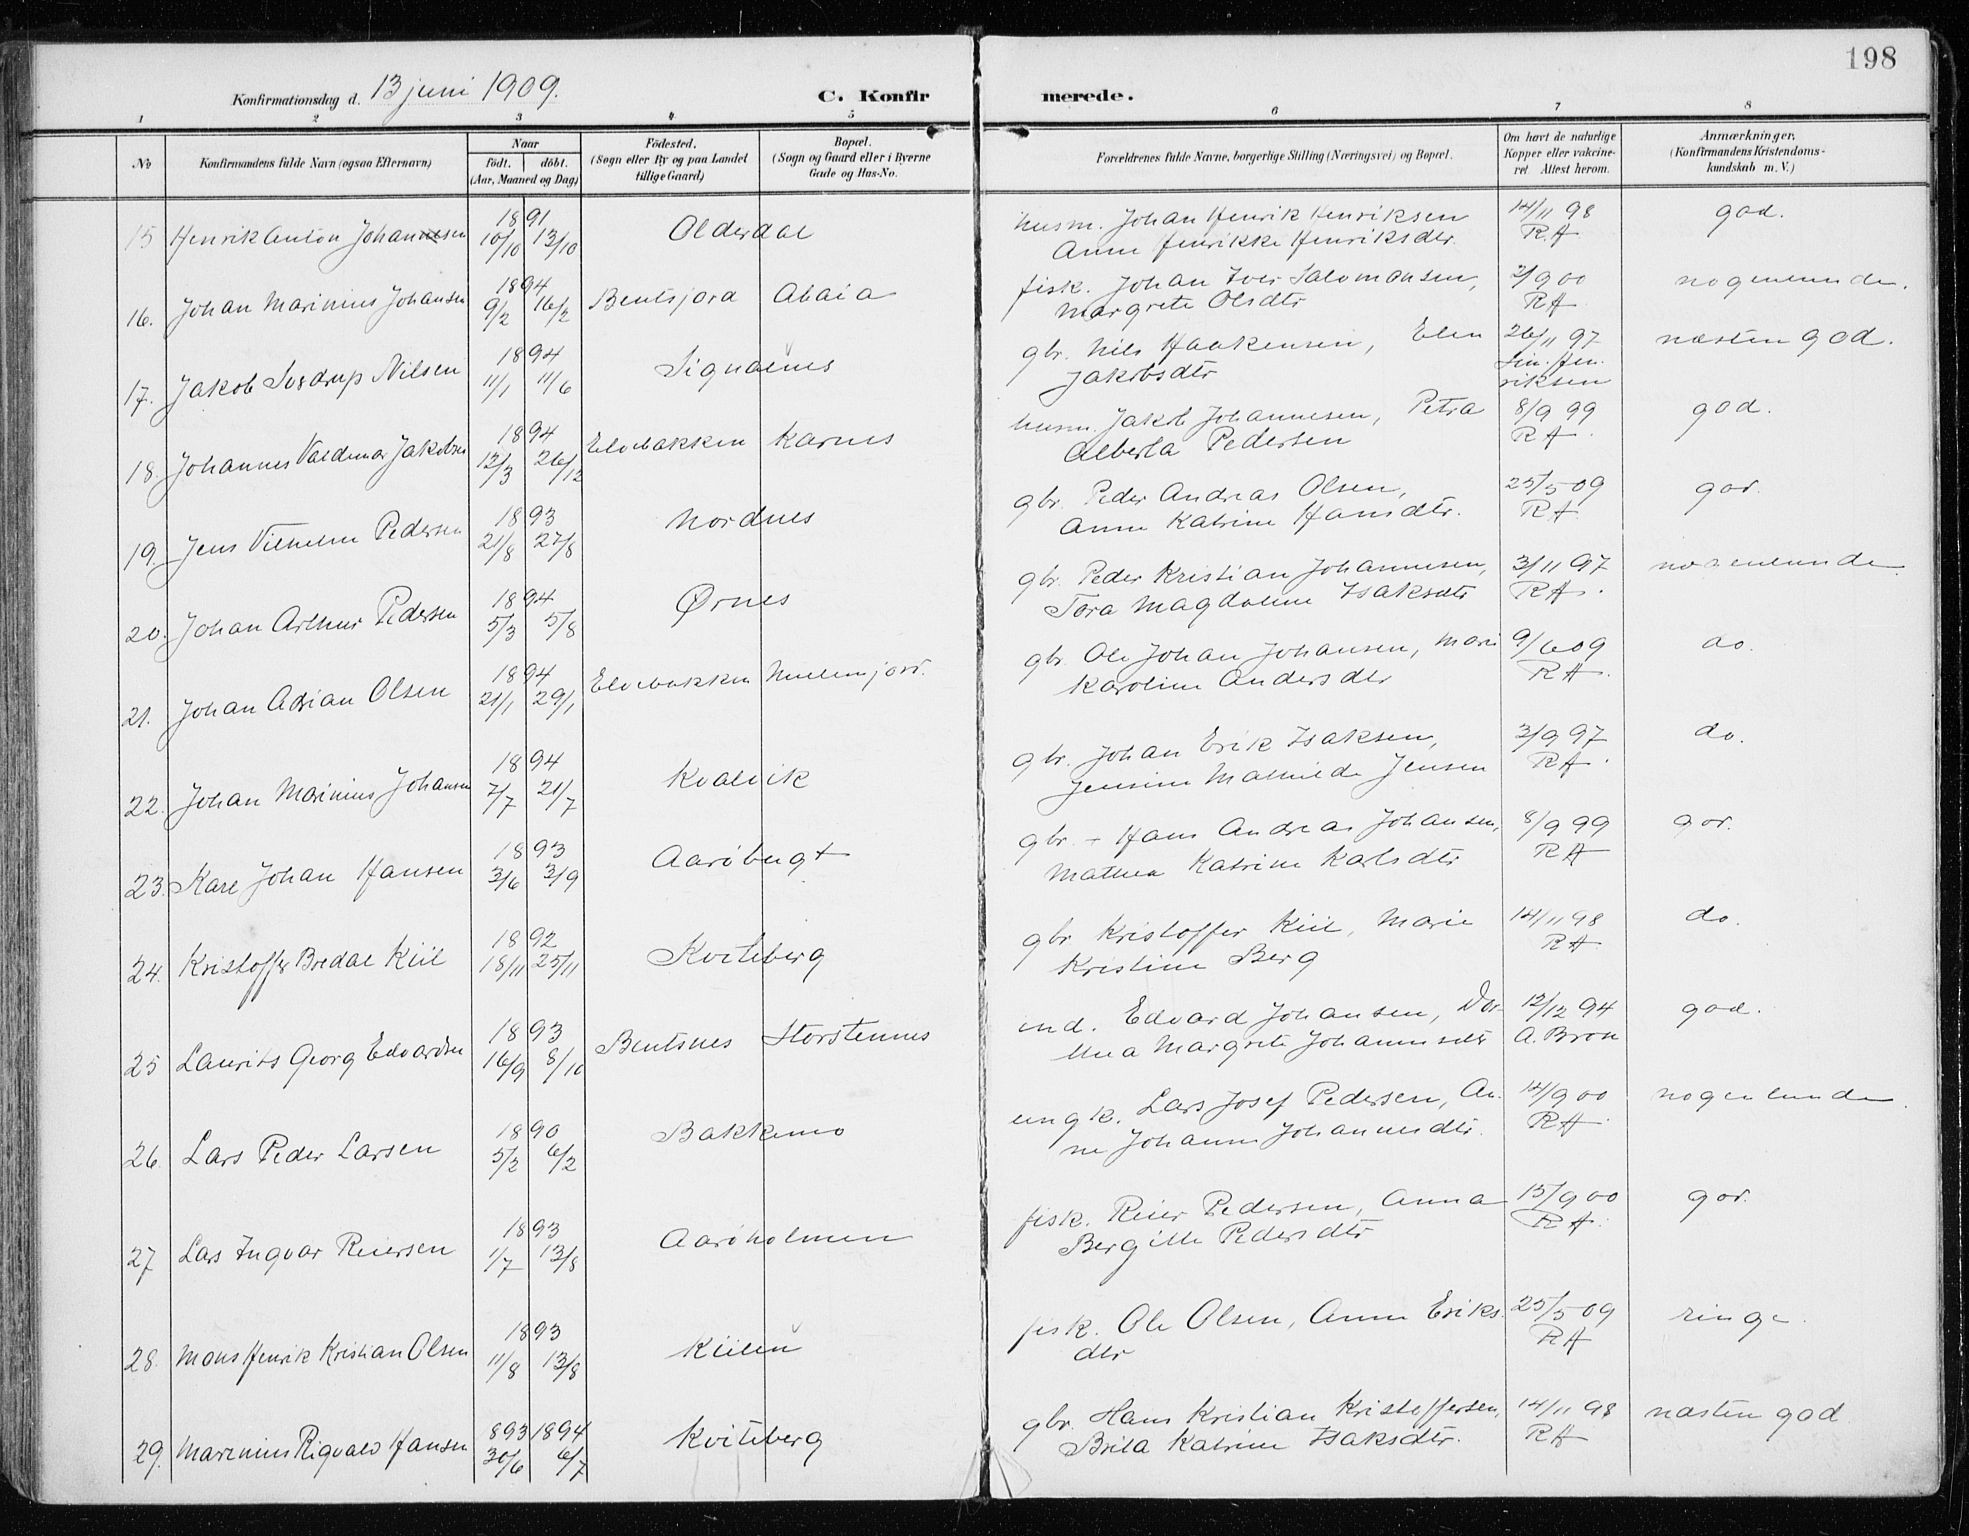 198
Konfirmationsdag d. 13 juni 1909.
C. Konfirmerede.
1 2 3 4 5 6 7 8
No
Konfirmandens fulde Navn (ogsaa Efternavn)
Naar
födt. döbt.
(Aar, Maaned og Dag)
Födested.
(Sogn eller By og paa Landet
tillige Gaard)
Bopæl.
(Sogn og Gaard eller i Byerne
Gade og Hus-No.
Forældrenes fulde Navne, borgerlige Stilling (Næringsvei) og Bopæl.
Om havt de naturlige
Kopper eller vakcine-
ret. Attest herom.
Anmærkninger.
(Konfirmandens Kristendoms-
kundskab m. V.)
15 Henrik Anton Johannesen 1891 10/10 13/10 Olderdal husm. Johan Henrik Henriksen 14/11 98 god.
Anne Henrikke Henriksdtr. RA
16. Johan Marinius Johansen 1894 9/2 16/2 Bentsjord Abaia fisk. Johan Iver Salomonsen, 2/9 00 nogenlunde.
Margrete Olsdtr RA
17. Jakob Sverdrup Nilsen 1894 11/1 11/6 Signalnes gbr. Nils Haakensen, Elen 26/11 97 næsten god.
Jakobsdtr Sin. Hen-
riksen
18. Johannes Valdemar Jakobsen 1894 12/3 26/12 Elvebakken Karnes husm. Jakob Johannesen, Petra 8/9 99 god.
Alberta Pedersen RA
19. Jens Vilhelm Pedersen 1893 21/8 27/8 Nordnes gbr. Peder Andreas Olsen, 25/5 09 gor.
Anne Katrine Hansdtr. RA
20. Johan Arthur Pedersen 1894 5/3 5/8 Ørnes gbr. Peder Kristian Johannesen, 3/11 97 nogenlunde
Tora Magdalene Isaksdtr RA.
21. Johan Adrian Olsen 1894 21/1 29/1 Elvebakken gbr. Ole Johan Johansen, Mari 9/6 09 do.
Karoline Andersdtr RA
22. Johan Marinius Johansen 1894 7/7 21/7 Kvalvik gbr. Johan Erik Isaksen, 3/9 97 do.
Jensine Mathilde Jensen RA.
23. Karl Johan Hansen 1893 3/6 3/9 Aarøbugt gbr. + Hans Andreas Johansen, 8/9 99 gor.
Mathea Katrine Karlsdtr RA
24. Kristoffer Bredal Kiil 1892 18/11 25/11 Kviteberg gbr Kristoffer Kiil, Marie 14/11 98 do.
Kristine Berg RA
25 Laurits Georg Edvardsen 1893 16/9 8/10 Bentsnes Storstennes ind. Edvard Johansen, Dor- 12/12 94 god.
thea Margrete Johannesdtr A. Brox
26. Lars Peder Larsen 1890 5/2 6/2 Bakkemo ungk. Lars Josef Pedersen, An- 14/9 00 nogenlunde.
ne Johanne Johannesdtr. RA
27 Lars Ingvar Reiersen 1893 1/7 13/8 Aarøholmen fisk. Reier Pedersen, Anna 15/9 00 gor.
Bergitte Pedersdtr RA.
28. Mons Henrik Kristian Olsen 1893 11/8 13/8 Kiilen fisk. Ole Olsen, Anne Eriks- 25/5 09 ringe.
dtr RA
29. Marinius Rigvald Hansen 893 1894 30/6 6/7 Kviteberg gbr. Hans Kristian Kristoffersen, 14/11 98 næsten god
Brita Katrine Isaksdtr. RA